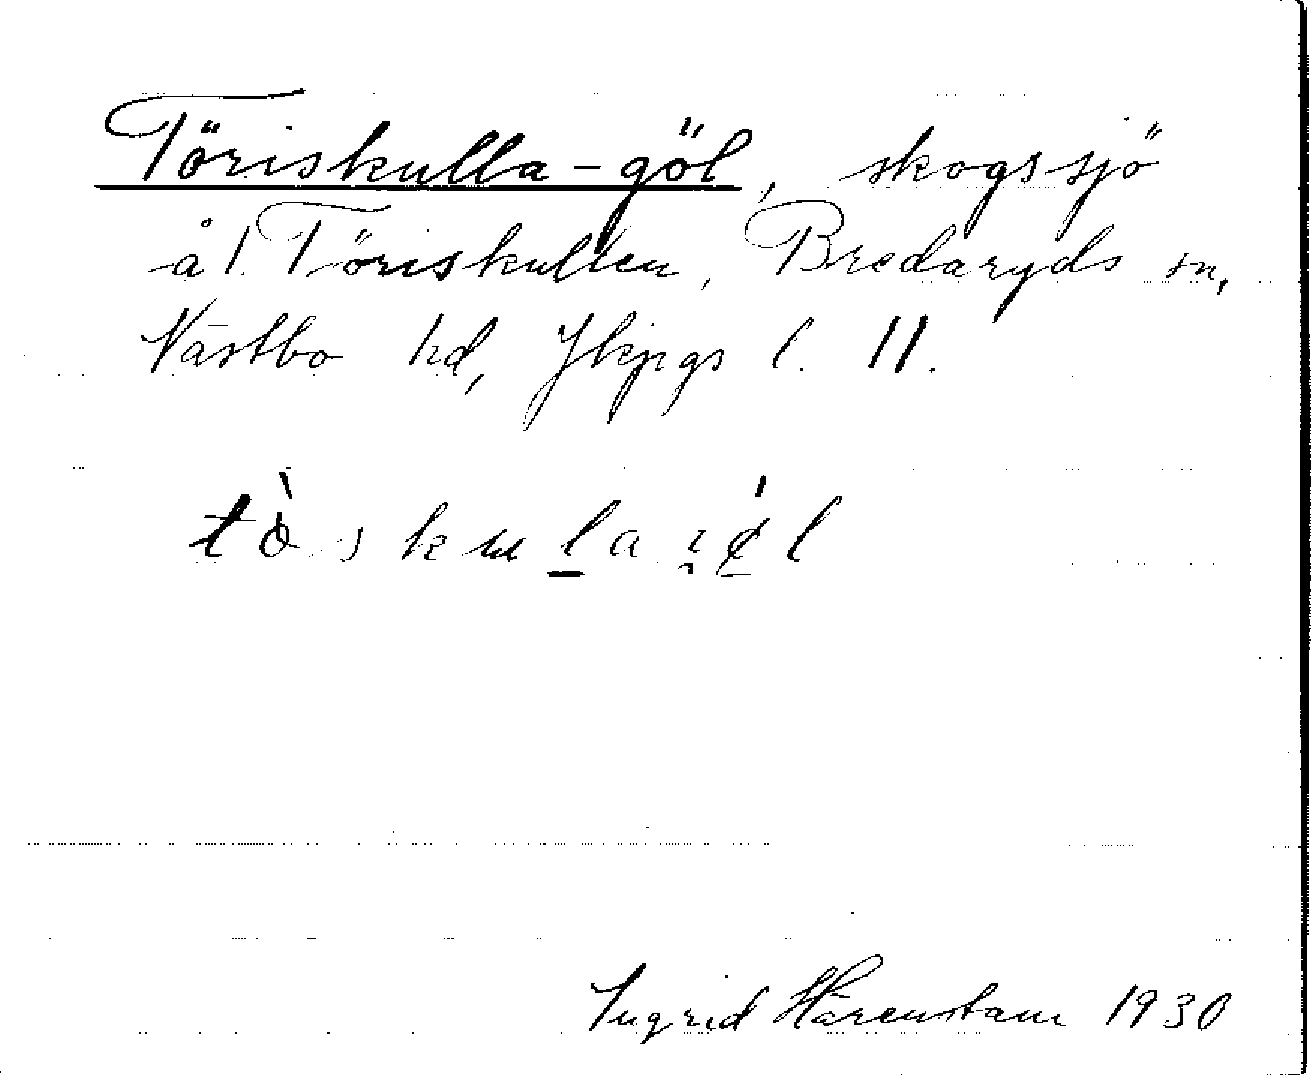 Töriskulla-göl, skogssjö
å 1. Töriskullen, Bredaryds sn,
Västbo hd, Jkpgs l. 11.
Ingrid Härenstam 1930